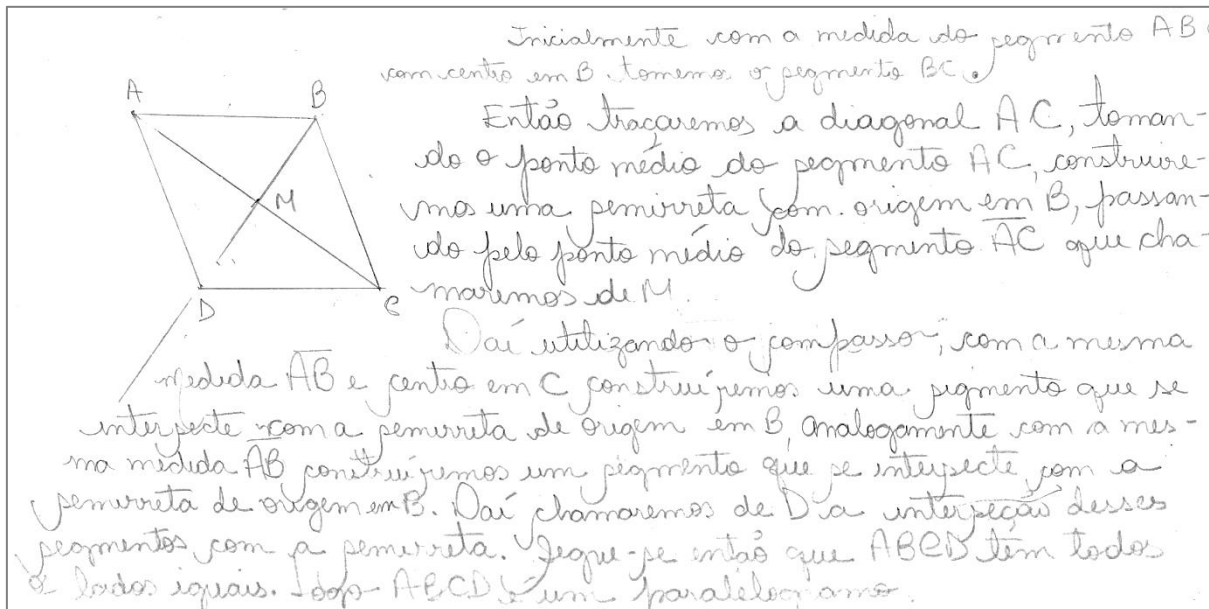 Inicialmente com a medida do segmento AB e
com centro em B tomemos o segmento BC.
A
B
Então traçaremos a diagonal AC, toman-
do o ponto médio do segmento AC, construire-
M
mos uma semirreta com origem em B, passan-
do pelo ponto médio do segmento AC que cha-
D
C
maremos de M.
Daí utilizando o compasso, com a mesma
medida AB e centro em C construiremos uma segmento que se
intersecte com a semirreta de origem em B, analogamente com a mes-
ma medida AB construiremos um segmento que se intersecte com a
semirreta de origem em B. Daí chamaremos de D a interseção desses
segmentos com a semirreta. Segue-se então que ABCD têm todos
os lados iguais. Logo ABCD é um paralelogramo.